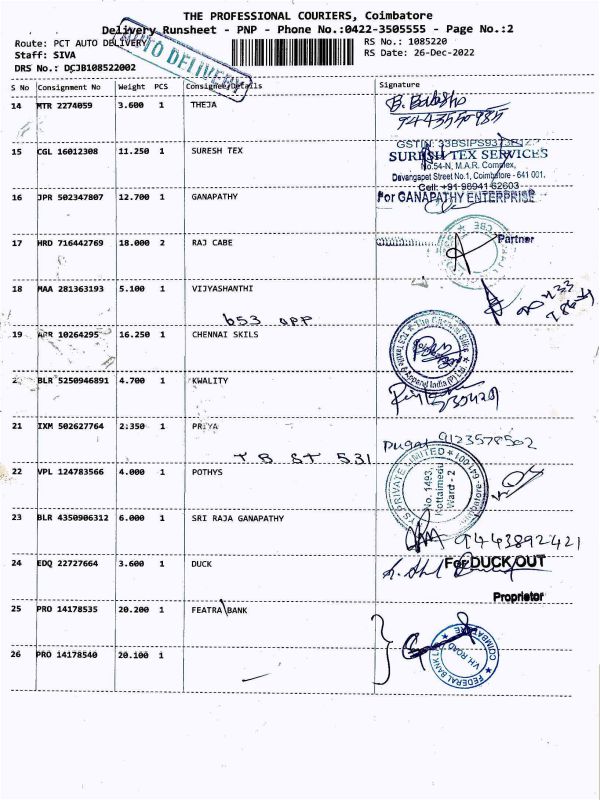 THE PROFESSIONAL COURIERS, Coimbatore
Delivery Runsheet - PNP - Phone No.:0422-3505555 - Page No.:2
Route: PCT AUTO DELIVERY
RS No.: 1085220
Staff: SIVA
RS Date: 26-Dec-2022
DRS No.: DCJB108522002
AUTO DELIVERY
S No Consignment No Weight PCS Consignee/Details Signature
14 MTR 2274059 3.600 1 THEJA
15 CGL 16012308 11.250 1 SURESH TEX
SURESH TEX SERVICES
No.54-N, M.A.R. Complex,
Devangapet Street No.1, Coimbatore - 641 001.
Cell: +91 98941 62603
16 JPR 502347807 12.700 1 GANAPATHY
For GANAPATHY ENTERPRISE
17 HRD 716442769 18.000 2 RAJ CABE
Partner
18 MAA 281363193 5.100 1 VIJYASHANTHI
653 OPP
19 APR 10264295 16.250 1 CHENNAI SKILS
The Chennai Silks
BLR 5250946891 4.700 1 KWALITY
21 IXM 502627764 2.350 1 PRIYA
9123578502
TB ST 531
22 VPL 124783566 4.000 1 POTHYS
PRIVATE LIMITED
641001
No. 1493,
Kottaimedu
Ward - 2
23 BLR 4350906312 6.000 1 SRI RAJA GANAPATHY
9443892421
24 EDQ 22727664 3.600 1 DUCK
For DUCK OUT
Proprietor
25 PRO 14178535 20.200 1 FEATRA BANK
26 PRO 14178540 20.100 1
FEDERAL BANK
VH. ROAD
COIMBATORE